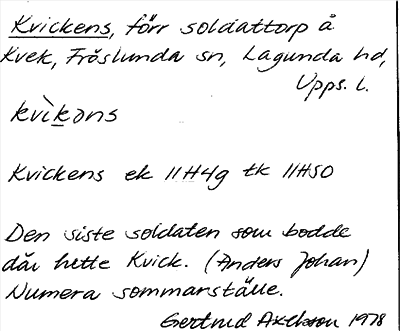 Kvickens, förr soldattorp å
Kvek, Fröslunda sn, Lagunda hd,
Upps. l.
kvìkəns
Kvickens ek 11H4g tk 11H50
Den siste soldaten som bodde
där hette Kvick. (Anders Johan)
Numera sommarställe.
Gertrud Axelsson 1978